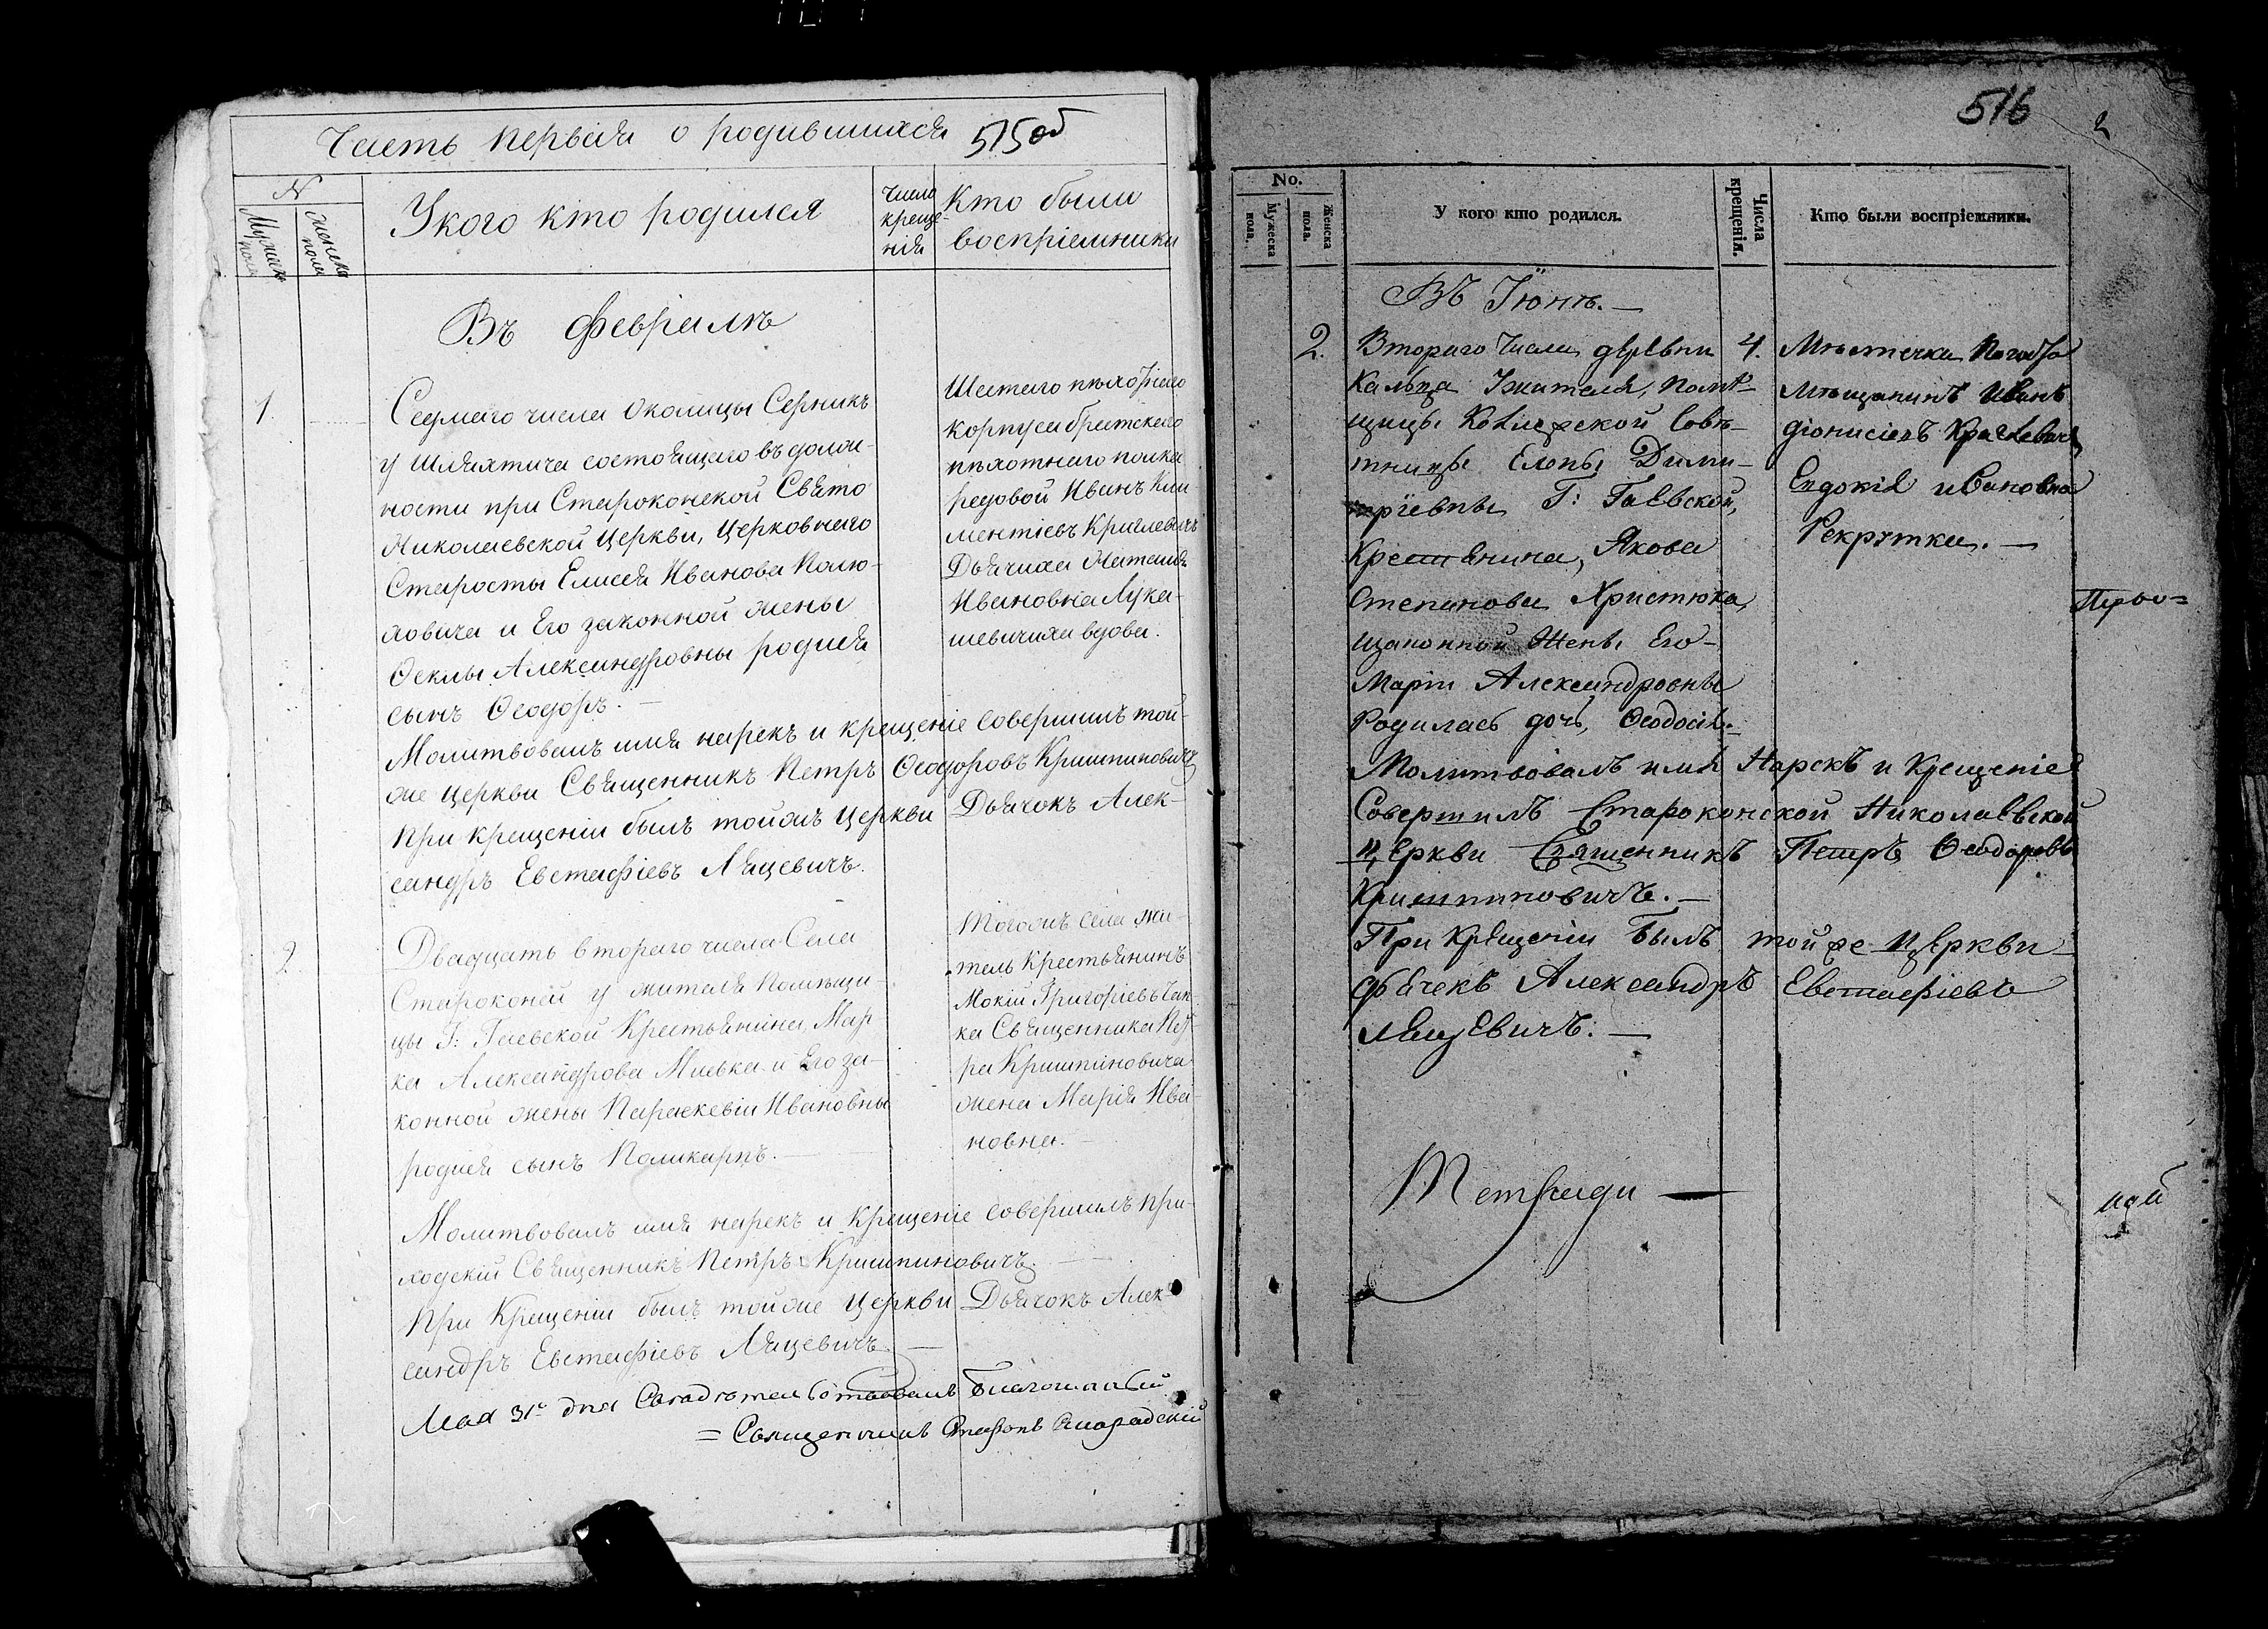 Часть первая о родившихся 515об
N
Мужеска пола
Женска пола
У кого кто родился
Число крещенія
Кто были
воспріемники
Въ Февралѣ
1.
Седмаго числа Околицы Серникъ
у шляхтича состоящаго въ долж-
ности при Староконской Свято
Николаевской Церкви, Церковнаго
Старосты Елисея Иванова Полю-
ховича и Его законной жены
Ѳеклы Александровны родися
сынъ Ѳеодоръ. —
Шестаго пѣхотнаго
корпуса Брестскаго
пѣхотнаго полка
редовой Иванъ Кли-
ментіевъ
Дьячиха Наталья
Ивановна Лука-
шевичиха вдова.
Молитвовалъ имя нарекъ и крещеніе совершилъ той-
же Церкви Священникъ Петръ Ѳеодоровъ Кришпиновичъ
При крещеніи былъ тойжъ Церкви Дьячокъ Алек-
сандръ Евстафіевъ Ляцевичъ.
2
Двадцать втораго числа Села
Староконей у жителя Помѣщи-
цы Г: Гаевской Крестьянина Мар
ка Александрова Миевка и Его за-
конной жены Параскевіи Ивановны
родися сынъ Поликарпъ. —
Тогожъ села жи-
тель Крестьянинъ
Мокій Григоріевъ
ка Священника Пет
ра Кришпиновича
жена Марія Ива-
новна. —
Молитвовалъ имя нарекъ и Крещеніе совершилъ при-
ходскій Священникъ Петръ Кришпиновичъ. —
При Крещеніи былъ тойже Церкви Дьячокъ Алек-
сандръ Евстафіевъ Ляцевичъ —
Мая 31го дня Свидѣтельствовалъ Благочинный
= Священникъ Стефанъ
516
2
No.
Мужеска пола.
Женска пола.
У кого кто родился.
Числа крещенія.
Кто были воспріемники.
Въ Іюнѣ. —
2.
Втораго Числа деревни
Кальца Жителя, Помѣ-
щицы Колежской Совѣ-
тницы Елены Дими-
тріевны Г: Гаевской,
Крестьянина, Якова
Степанова Христюка,
Жены Его —
Маріи Александровны
Родилась дочь, Ѳеодосія. —
4.
Мѣстечка Погоста
Мѣщанинъ Иванъ
Діонисіевъ
Евдокія Ивановна
Рекрутка. —
Молитвовалъ имя Нарекъ и Крещеніе
Совершилъ Староконской Николаевской
Церкви Священникъ Петръ Ѳеодоровъ
Кришпиновичъ. —
При Крещеніи Былъ тойже Церкви —
Дьячекъ Александръ Евстафіевъ
Ляцевичъ. —
Перво=
Тетради —